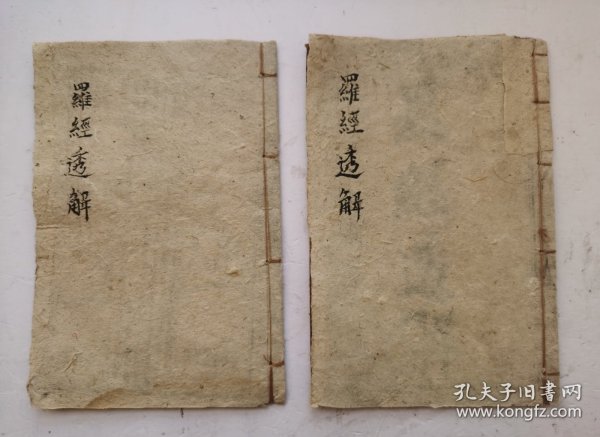 羅經透解
羅經透解
孔夫子旧書网
www.kongfz.com